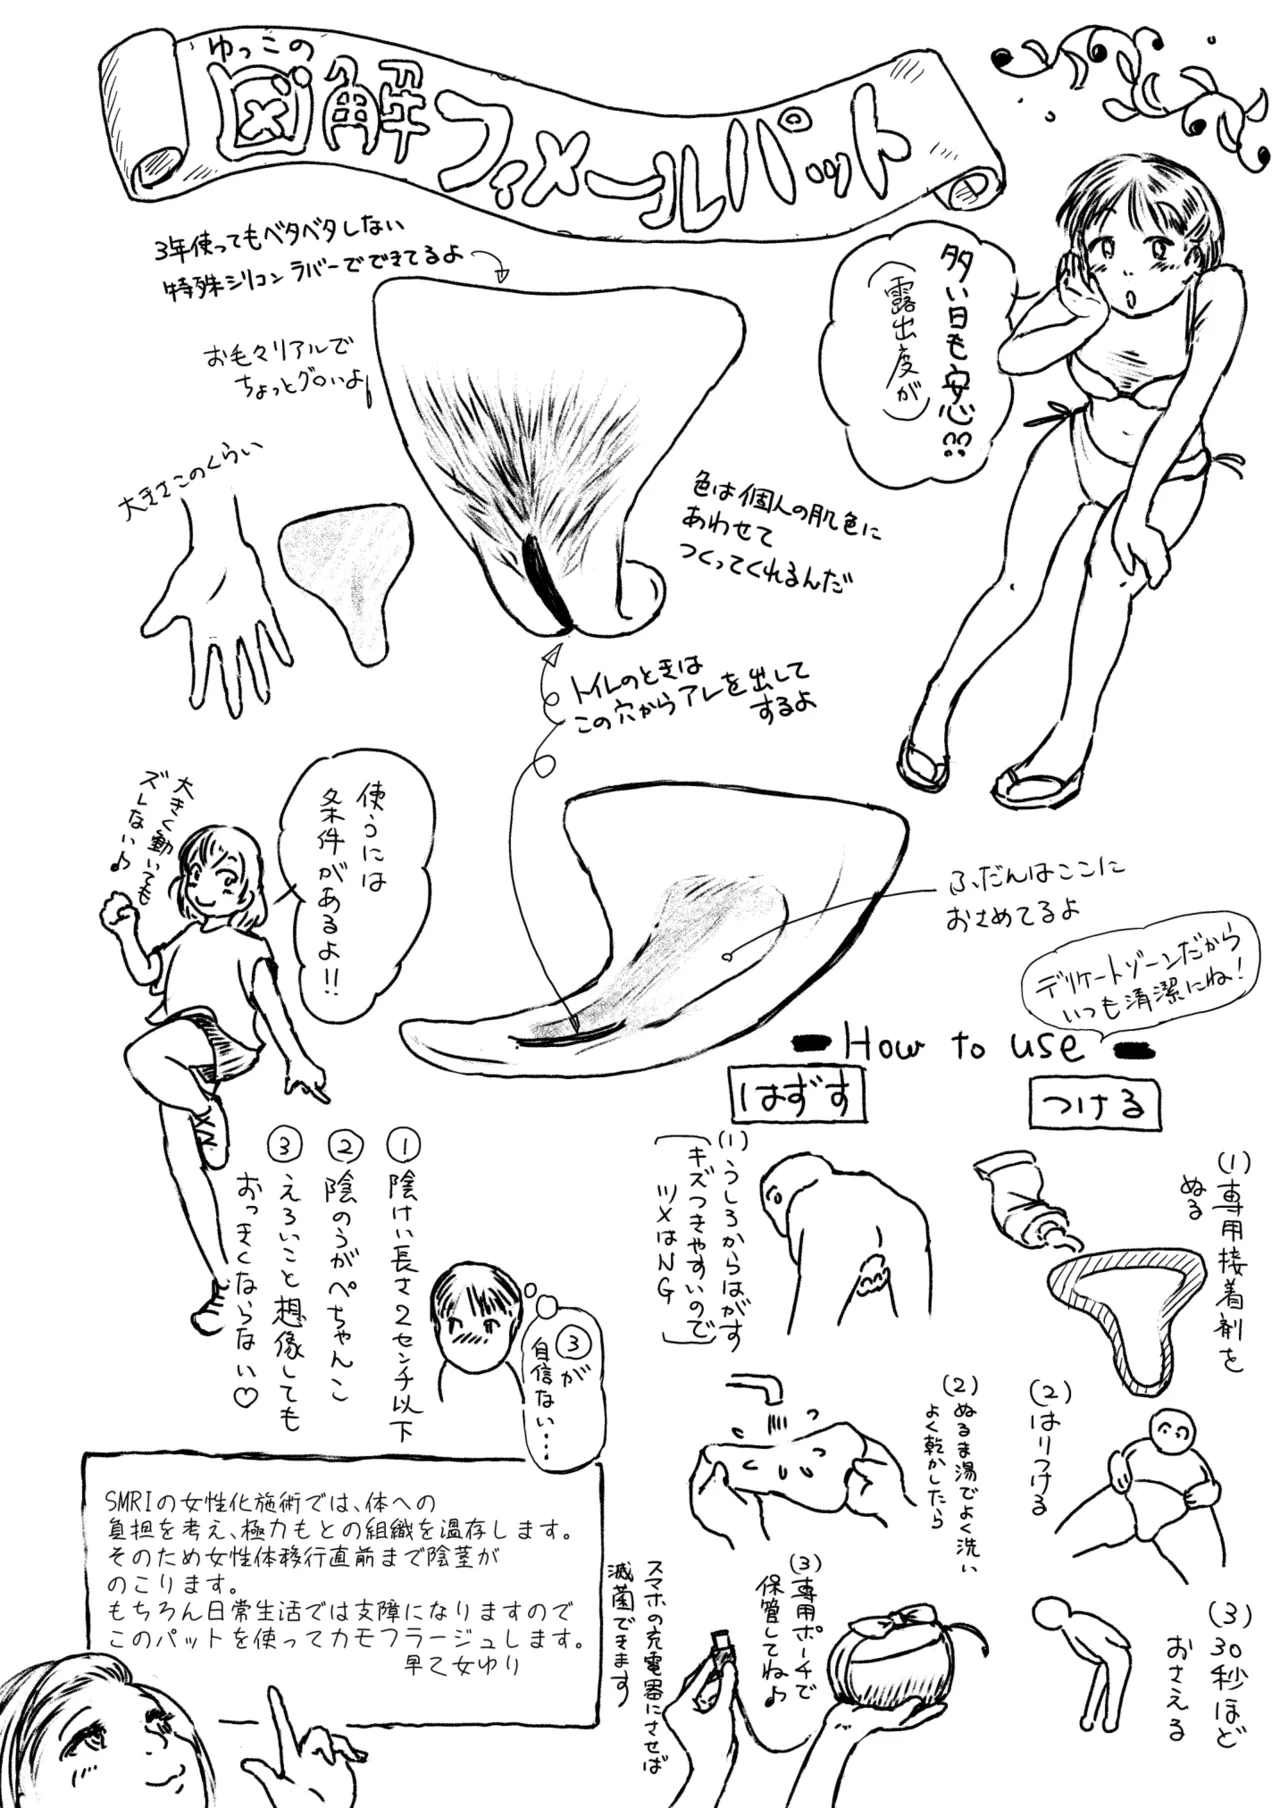 ゆっこの
図解フィメールパット
3年使ってもベタベタしない
特殊シリコンラバーでできてるよ
お毛々リアルで
ちょっとグロいよ
多い日も安心??
(露出度が)
大きさこのくらい
色は個人の肌色に
あわせて
つくってくれるんだ
トイレのときは
この穴からアレを出して
するよ
大きく動いても
ズレない♪
使うには
条件があるよ!!
ふだんはここに
おさめてるよ
デリケートゾーンだから
いつも清潔にね!
How to use
① 陰けい長さ2センチ以下
② 陰のうがぺちゃんこ
③ えろいこと想像しても
おっきくならない♡
③が
自信ない…
つける
(1)専用接着剤を
ぬる
(2)はりつける
(3)30秒ほど
おさえる
はずす
(1)うしろからはがす
(キズつきやすいので
ツメはNG)
(2)ぬるま湯でよく洗い
よく乾かしたら
(3)専用ポーチで
保管してね♪
スマホの充電器にさせば
滅菌できます
SMRIの女性化施術では、体への
負担を考え、極力もとの組織を温存します。
そのため女性体移行直前まで陰茎が
のこります。
もちろん日常生活では支障になりますので
このパットを使ってカモフラージュします。
早乙女ゆり